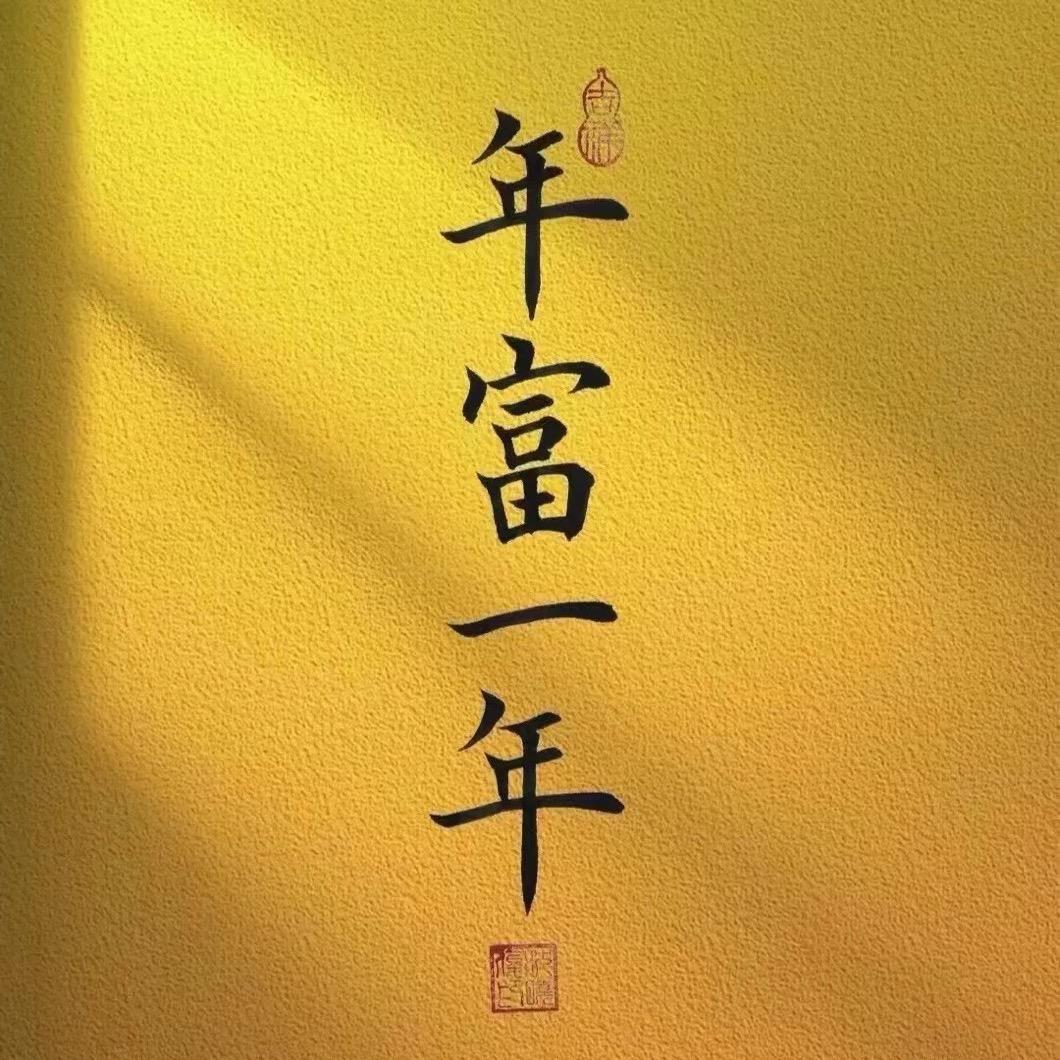 年富一年
吉祥